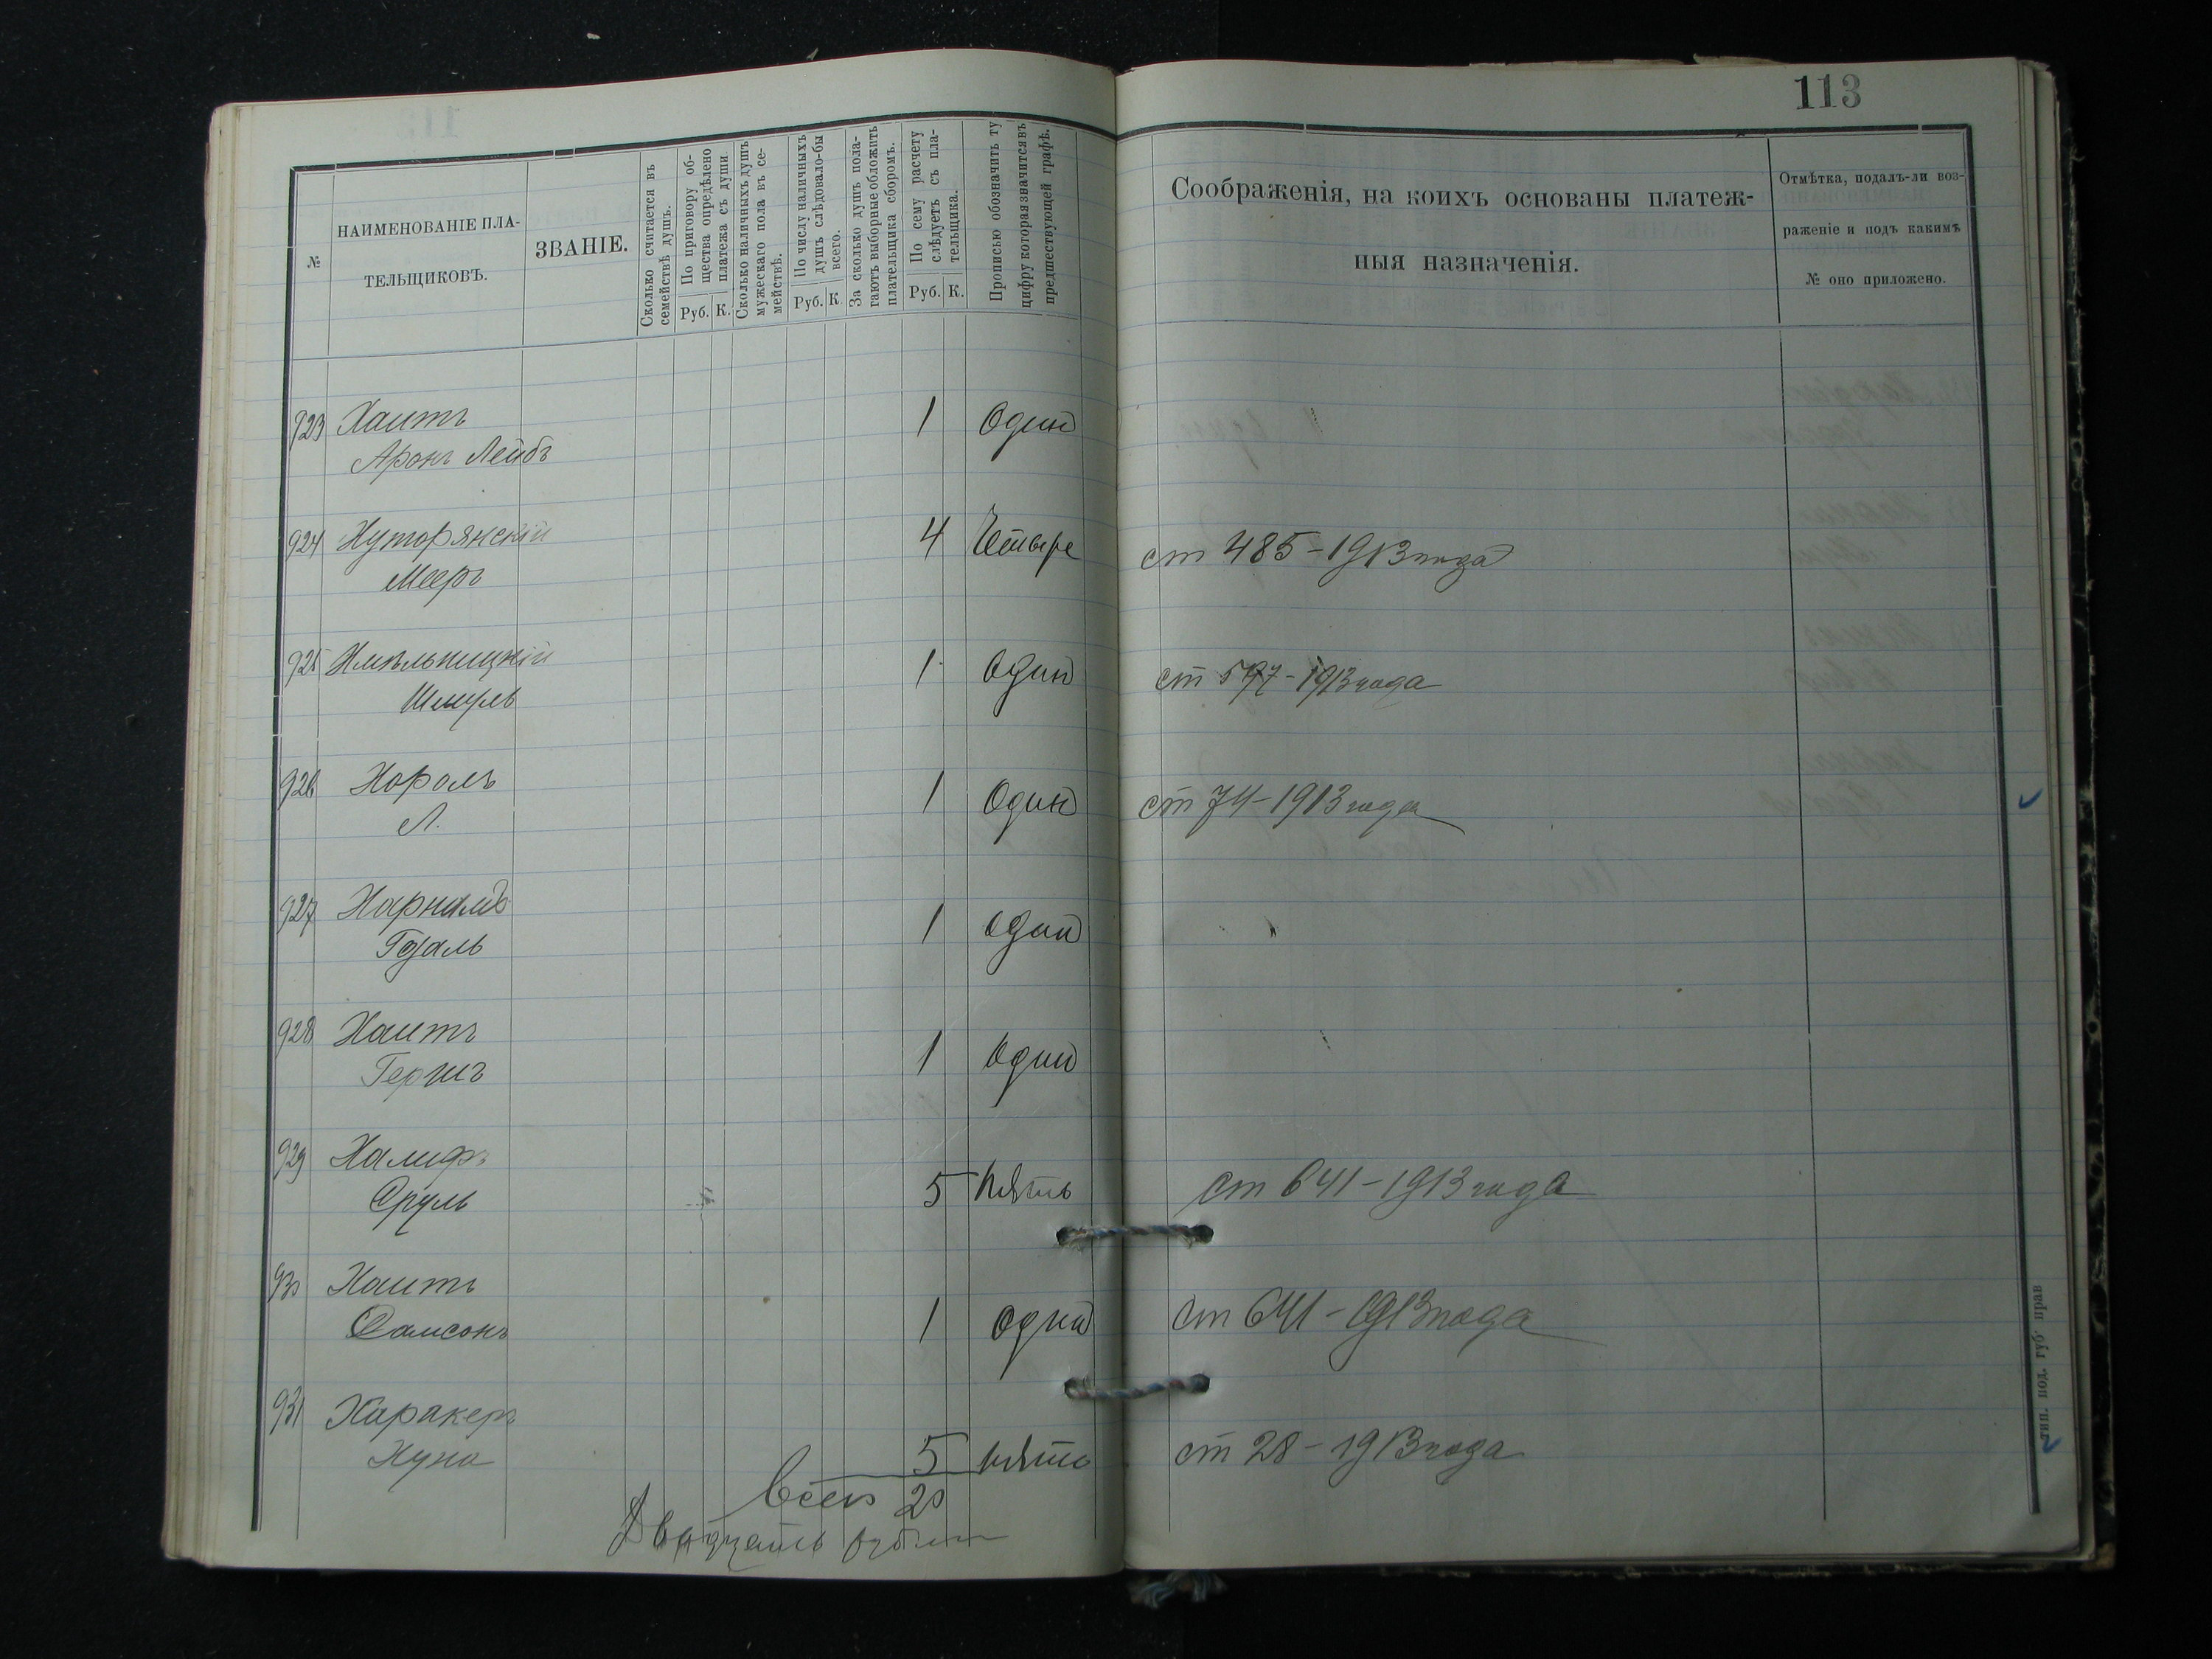 113
№
НАИМЕНОВАНІЕ ПЛА-
ТЕЛЬЩИКОВЪ.
ЗВАНІЕ.
Сколько считается въ
семействѣ душъ.
По приговору об-
щества опредѣлено
платежа съ души.
Руб. К.
Сколько наличныхъ душъ
мужескаго пола въ се-
мействѣ.
По числу наличныхъ
душъ слѣдовало-бы
всего.
Руб. К.
За сколько душъ пола-
гаютъ выборные обложить
плательщика сборомъ.
По сему расчету
слѣдуетъ съ пла-
тельщика.
Руб. К.
Прописью обозначить ту
цифру которая значится въ
предшествующей графѣ.
Соображенія, на коихъ основаны платеж-
ныя назначенія.
Отмѣтка, подалъ-ли воз-
раженіе и подъ какимъ
№ оно приложено.
923 Хаитъ 1 Один
Аронъ Лейбъ
924 Хуторянскій 4 Четыре ст 485-1913 года
Мееръ
925 Хмѣльницкій 1 Один ст 597-1913 года
Шмуль
926 Хороль 1 Один ст 74-1913 года
Л.
927 1 Один
Гдаль
928 Хаитъ 1 Один
Гершъ
929 Халифъ
Сруль 5 Пять ст 641-1913 года
930 Хаитъ
Самсонъ 1 Один ст 641-1913 года
931 Харакеръ
Хуна 5 пять ст 28-1913 года
Всего 20
Двадцать рублей
тип. под. губ прав